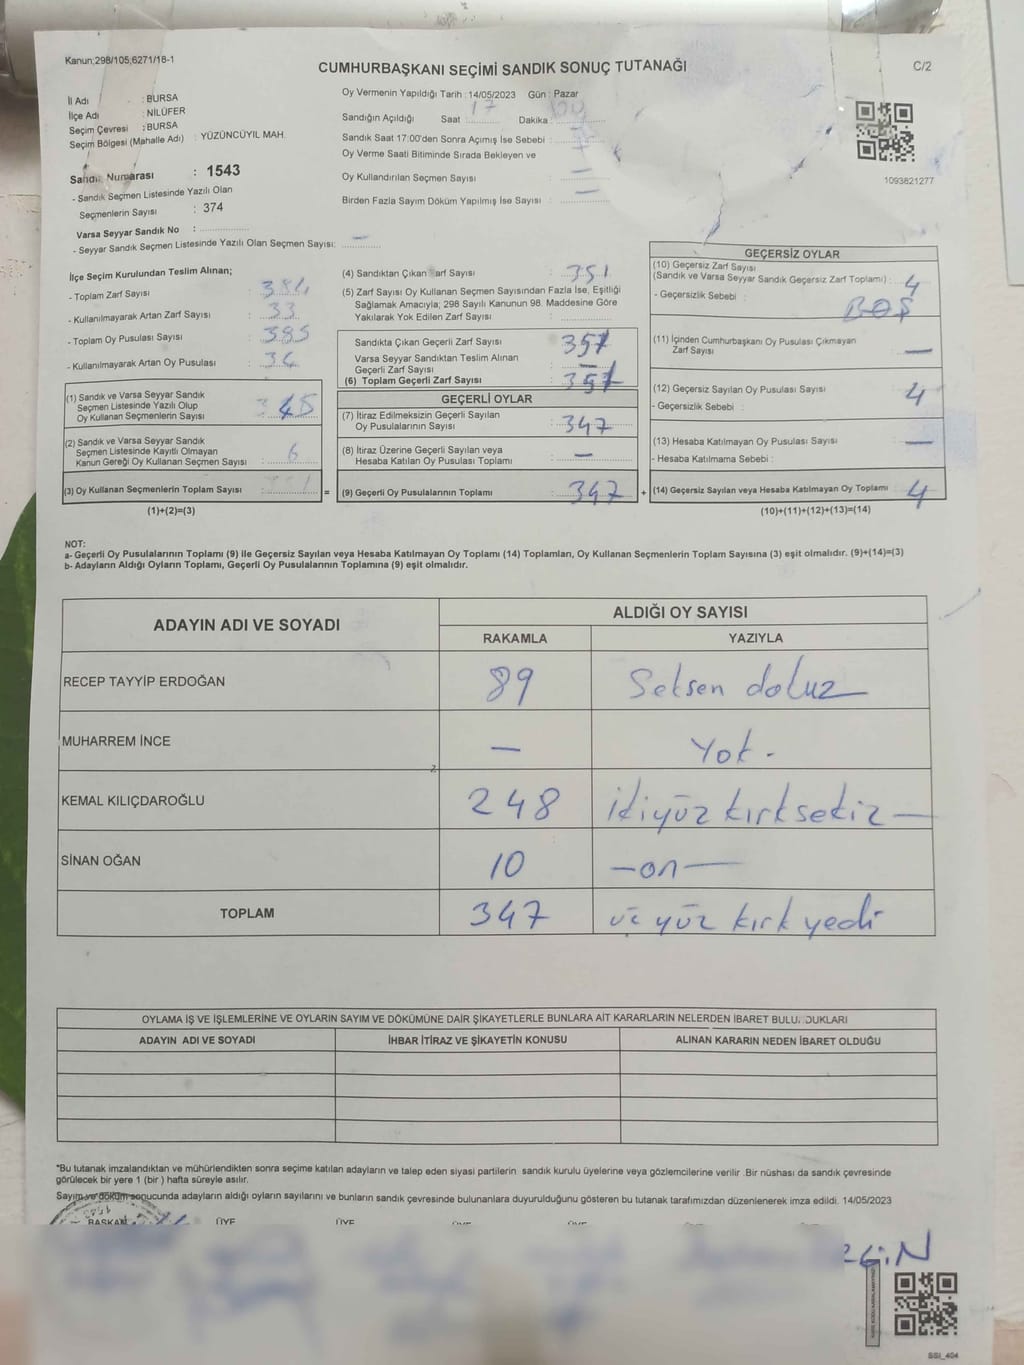 Kanun;298/105,6271/18-1
CUMHURBAŞKANI SEÇİMİ SANDIK SONUÇ TUTANAĞI
C/2
İl Adı : BURSA
İlçe Adı : NİLÜFER
Seçim Çevresi : BURSA
Seçim Bölgesi (Mahalle Adı) : YÜZÜNCÜYIL MAH.
Sandık Numarası : 1543
- Sandık Seçmen Listesinde Yazılı Olan
Seçmenlerin Sayısı : 374
Varsa Seyyar Sandık No :
- Seyyar Sandık Seçmen Listesinde Yazılı Olan Seçmen Sayısı: —
Oy Vermenin Yapıldığı Tarih : 14/05/2023 Gün : Pazar
Sandığın Açıldığı Saat : 17 Dakika :
Sandık Saat 17:00'den Sonra Açımış İse Sebebi :
Oy Verme Saati Bitiminde Sırada Bekleyen ve
Oy Kullandırılan Seçmen Sayısı : —
Birden Fazla Sayım Döküm Yapılmış İse Sayısı : —
1093821277
İlçe Seçim Kurulundan Teslim Alınan;
- Toplam Zarf Sayısı : 384
- Kullanılmayarak Artan Zarf Sayısı : 33
- Toplam Oy Pusulası Sayısı : 385
- Kullanılmayarak Artan Oy Pusulası : 34
(1) Sandık ve Varsa Seyyar Sandık
Seçmen Listesinde Yazılı Olup
Oy Kullanan Seçmenlerin Sayısı : 345
(2) Sandık ve Varsa Seyyar Sandık
Seçmen Listesinde Kayıtlı Olmayan
Kanun Gereği Oy Kullanan Seçmen Sayısı : 6
(3) Oy Kullanan Seçmenlerin Toplam Sayısı : 351
(1)+(2)=(3)
(4) Sandıktan Çıkan Zarf Sayısı : 351
(5) Zarf Sayısı Oy Kullanan Seçmen Sayısından Fazla İse, Eşitliği
Sağlamak Amacıyla; 298 Sayılı Kanunun 98. Maddesine Göre
Yakılarak Yok Edilen Zarf Sayısı :
Sandıkta Çıkan Geçerli Zarf Sayısı
Varsa Seyyar Sandıktan Teslim Alınan
Geçerli Zarf Sayısı : —
(6) Toplam Geçerli Zarf Sayısı
GEÇERLİ OYLAR
(7) İtiraz Edilmeksizin Geçerli Sayılan
Oy Pusulalarının Sayısı : 347
(8) İtiraz Üzerine Geçerli Sayılan veya
Hesaba Katılan Oy Pusulası Toplamı : —
= (9) Geçerli Oy Pusulalarının Toplamı : 347
GEÇERSİZ OYLAR
(10) Geçersiz Zarf Sayısı
(Sandık ve Varsa Seyyar Sandık Geçersiz Zarf Toplamı) : 4
- Geçersizlik Sebebi : BOŞ
(11) İçinden Cumhurbaşkanı Oy Pusulası Çıkmayan
Zarf Sayısı —
(12) Geçersiz Sayılan Oy Pusulası Sayısı 4
- Geçersizlik Sebebi :
(13) Hesaba Katılmayan Oy Pusulası Sayısı —
- Hesaba Katılmama Sebebi :
+ (14) Geçersiz Sayılan veya Hesaba Katılmayan Oy Toplamı 4
(10)+(11)+(12)+(13)=(14)
NOT:
a- Geçerli Oy Pusulalarının Toplamı (9) ile Geçersiz Sayılan veya Hesaba Katılmayan Oy Toplamı (14) Toplamları, Oy Kullanan Seçmenlerin Toplam Sayısına (3) eşit olmalıdır. (9)+(14)=(3)
b- Adayların Aldığı Oyların Toplamı, Geçerli Oy Pusulalarının Toplamına (9) eşit olmalıdır.
ADAYIN ADI VE SOYADI
ALDIĞI OY SAYISI
RAKAMLA YAZIYLA
RECEP TAYYİP ERDOĞAN 89 Seksen dokuz
MUHARREM İNCE — Yok -
KEMAL KILIÇDAROĞLU 248 ikiyüz kırksekiz —
SİNAN OĞAN 10 — on —
TOPLAM 347 üç yüz kırk yedi
OYLAMA İŞ VE İŞLEMLERİNE VE OYLARIN SAYIM VE DÖKÜMÜNE DAİR ŞİKAYETLERLE BUNLARA AİT KARARLARIN NELERDEN İBARET BULUNDUKLARI
ADAYIN ADI VE SOYADI İHBAR İTİRAZ VE ŞİKAYETİN KONUSU ALINAN KARARIN NEDEN İBARET OLDUĞU
*Bu tutanak imzalandıktan ve mühürlendikten sonra seçime katılan adayların ve talep eden siyasi partilerin sandık kurulu üyelerine veya gözlemcilerine verilir .Bir nüshası da sandık çevresinde
görülecek bir yere 1 (bir ) hafta süreyle asılır.
Sayım ve döküm sonucunda adayların aldığı oyların sayılarını ve bunların sandık çevresinde bulunanlara duyurulduğunu gösteren bu tutanak tarafımızdan düzenlenerek imza edildi. 14/05/2023
BAŞKAN ÜYE ÜYE
SSI_404